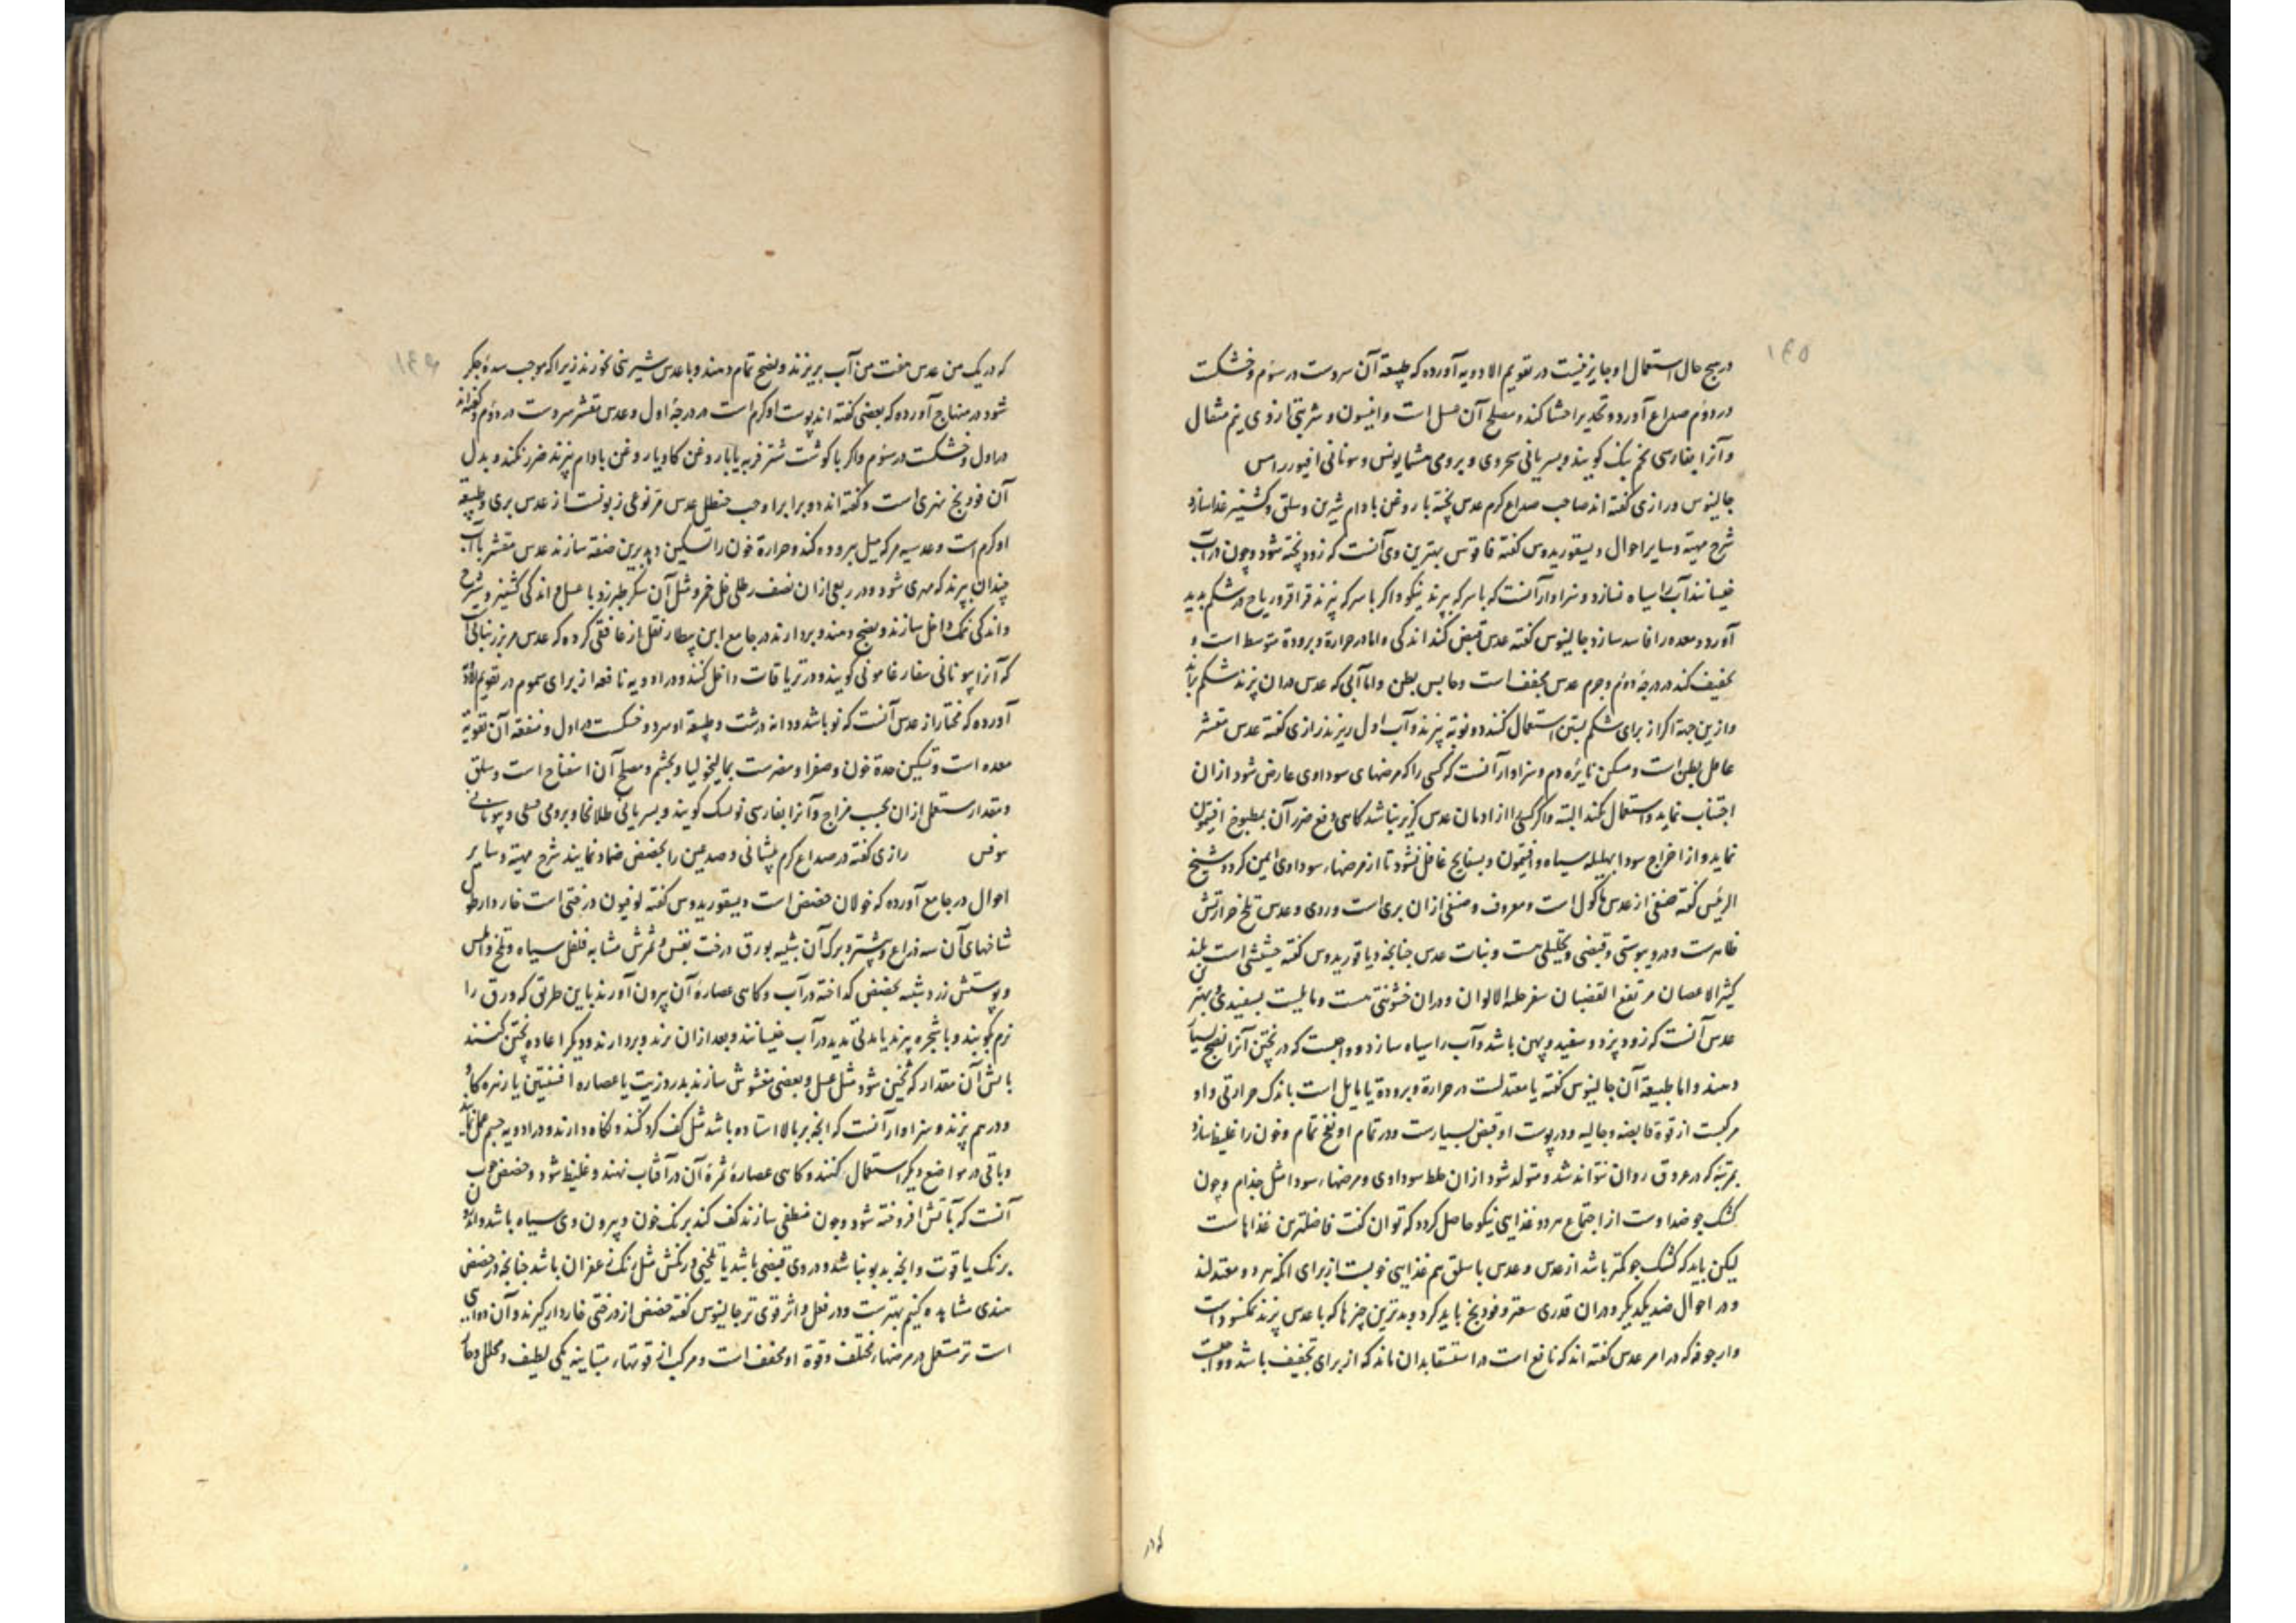 ۱۴۵
در هیچ حال استعمال او جایز نیست در تقویم الادویه آورده که طبیعة آن سردست در سوم و خشکست
در دوم صداع آورد و تخدیر احشا کند و مصلح آن عسل است و انیسون و شربتی از وی نیم مثقال
و آنرا بفارسی تخم بنک کویند و بسریانی و برومی و یونانی
جالینوس و رازی کفته اند صاحب صداع کرم عدس پخته با روغن بادام شیرین و سلق و کشنیز غذا سازد
شرح مهیة و سایر احوال دیسقوریدوس کفته فاقوس بهترین وی آنست که زود پخته شود و چون در آب
خیسانند آب را سیاه نسازد و سزاوار آنست که با سرکه بپزند نیکو و اکر با سرکه نپزند قراقر و ریاح در شکم پدید
آورد و معده را فاسد سازد و جالینوس کفته عدس قبض کند اندکی و اما در حرارة و برودة متوسط است و
تجفیف کند در درجهٔ دوم و جرم عدس مجفف است و حابس بطن و اما آبی که عدس در ان پزند شکم براند
و ازین جهة اکر از برای شکم بستن استعمال کنند دو نوبة پزند و آب اول ریزند رازی کفته عدس مقشر
عاقل بطن است و مسکن نایرهٔ دم و سزاوار آنست که کسی را که مرضهای سوداوی عارض شود از ان
اجتناب نماید و استعمال نکند البته و اکر کسی را از ادمان عدس کزیر نباشد کاهی دفع ضرر آن بمطبوخ افیتمون
نماید و از اخراج سودا بهلیله سیاه و افیتمون و بسفایج غافل نشود تا از مرضهاء سوداوی ایمن کردد شیخ
الرئیس کفته صنفی از عدس ماکول است و معروف و صنفی از ان بری است و ردی و عدس تلخ حرارتش
ظاهرست و درو یبوستی و قبضی و تحلیلی هست و نبات عدس چنانچه دیاقوریدوس کفته حشیشی است بلند
کثیر الاغصان مرتفع القضبان سفرجلیة الالوان و دران خشونتی هست و مایلست بسفیدی و بهترین
عدس آنست که زود پزد و سفید و پهن باشد و آب را سیاه سازد و واجبست که در پختن آنرا نضج بسیار
دهند و اما طبیعة آن جالینوس کفته یا معتدلست در حرارة و برودة یا مایل است باندک حرارتی و او
مرکبست از قوة قابضه و جالیه و در پوست او قبض بسیارست و در تمام او نفخ تمام و خون را غلیظ سازد
بمرتبهٔ که در عروق روان نتواند شد و متولد شود از ان خلط سوداوی و مرضهاء سودا مثل جذام و چون
کشک جو ضد اوست از اجتماع هر دو غذایی نیکو حاصل کردد که توان کفت فاضلترین غذاهاست
لیکن باید که کشک جو کمتر باشد از عدس و عدس با سلق هم غذایی خوبست از برای انکه هر دو معتدلند
و در احوال ضد یکدیکر و دران قدری سعتر و فودنج باید کرد و بدترین چیزها که با عدس پزند نمکسودست
و ارجوفه که در امر عدس کفته اند که نافع است در استسقا بدان ماند که از برای تجفیف باشد و واجبست
که در یک من عدس هفت من آب بریزند و نضج تمام دهند و با عدس شیرینی نخورند زیرا که موجب سدهٔ جکر
شود در منهاج آورده که بعضی کفته اند پوست او کرم است در درجهٔ اول و عدس مقشر سردست در دوم و کفته اند
در اول و خشکست در سوم و اکر با کوشت شتر فربه یا با روغن کاو یا روغن بادام پزند ضرر نکند و بدل
آن فودنج نهری است و کفته اند دو برابر او حب حنظل عدس مر نوعی زبونست از عدس بری و طبیعة
او کرم است و عدسیه مر که میل ببرودة کند و حرارة خون را تسکین دهد برین صفة سازند عدس مقشر با آب
چندان بپزند که مهری شود و در ربعی ازان نصف رطلی خل خمر و مثل آن سکر طبرزد یا عسل و اندکی کشنیز و شیرج
و اندکی نمک داخل سازند و نضج دهند و بردارند در جامع ابن بیطار نقل از غافقی کرده که عدس مر بزر نباتی است
که آنرا بیونانی کویند و در تریاقات داخل کنند و در ادویه نافعه از برای سموم در تقویم الادویة
آورده که مختار از عدس آنست که نو باشد و دانه درشت و طبیعة او سرد و خشکست در اول و منفعة آن تقویة
معده است و تسکین حدة خون و صفرا و مضرست بمالیخولیا و بچشم و مصلح آن اسفناخ است و سلق
و مقدار مستعمل ازان بحسب مزاج و آنرا بفارسی نوسک کویند و بسریانی طلافحا و برومی و یونانی
رازی کفته در صداع کرم پیشانی و صدغین را بحضض ضماد نمایند شرح مهیة و سایر
احوال در جامع آورده که خولان حضض است دیسقوریدوس کفته لوفیون درختی است خاردار طول
شاخهای آن سه ذراع و بیشتر و برک آن شبیه بورق درخت بقس و ثمرش مشابه فلفل سیاه و تلخ و املس
و پوستش زرد شبیه بحضض کداخته در آب و کاهی عصارهٔ آن بیرون آورند باین طریق که ورق را
نرم کوبند و با شجره پزند یا مدتی مدید در آب خیسانند و بعد ازان پزند و بردارند و دیکر اعاده پختن کنند
باتش آن مقدار که ثخین شود مثل عسل و بعضی مغشوش سازند بدردی زیت یا عصاره افسنتین یا زهره کاو
و درهم پزند و سزاوار آنست که انچه بر بالا استاده باشد مثل کف کرد کنند و نکاه دارند و در ادویه چشم عمل نمایند
و باقی در مواضع دیکر استعمال کنند و کاهی عصارهٔ ثمرهٔ آن در آفتاب نهند و غلیظ شود و حضض خوب
آنست که بآتش افروخته شود و چون منطفی سازند کف کند برنک خون و بیرون وی سیاه باشد و اندرون
برنک یاقوت و انچه بدبو نباشد و در وی قبضی باشد با تلخی و رنکش مثل رنک زعفران باشد چنانچه در حضض
هندی مشاهده کنیم بهترست و در فعل و اثر قوی تر جالینوس کفته حضض از درختی خاردار کیرند و آن دوایی
است تر مستعمل در مرضهاء مختلف و قوة او مجفف است و مرکب از قوتهاء متباینه یکی لطیف و محلل و حار